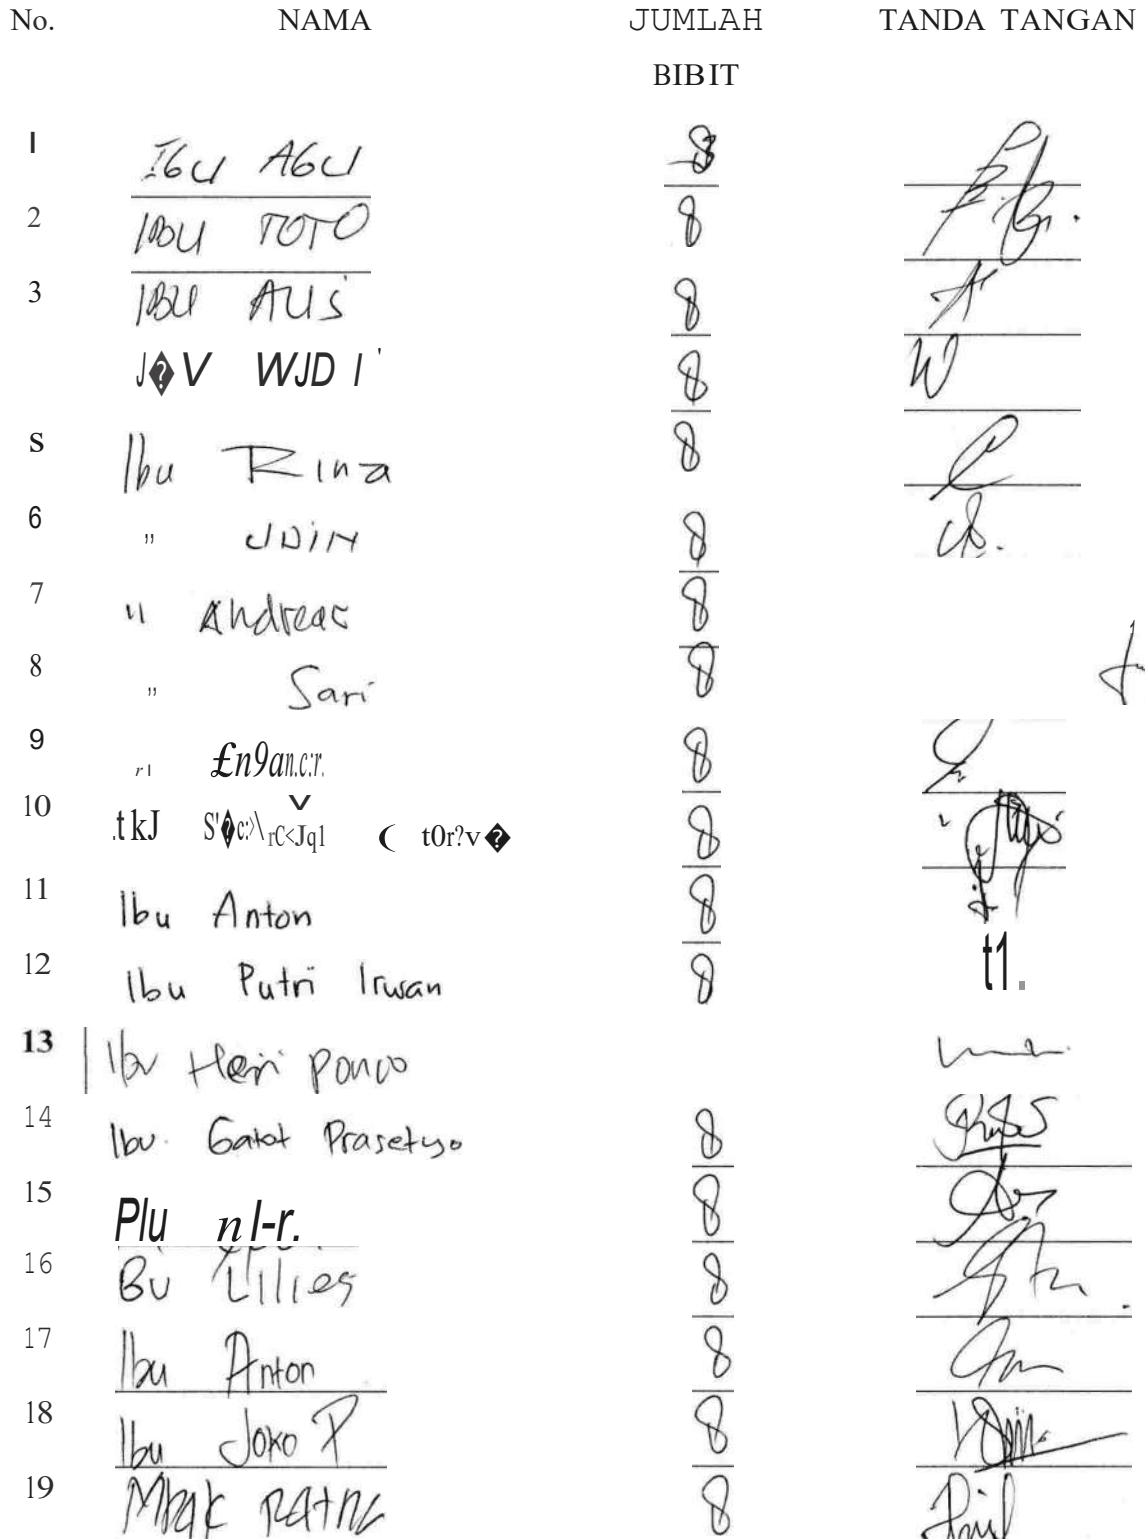 No. NAMA JUMLAH TANDA TANGAN
BIBIT
1 IBU AGU 8
2 IBU TOTO 8
3 IBU AUS 8
J�V WJD I ' 8 W
S Ibu Rina 8
6 " UDIN 8
7 " Andreas 8
8 " Sari 8
9 r I £n9an.c:r. 8
10 .t kJ 8
11 Ibu Anton 8
12 Ibu Putri Irwan 8 t1.
13 Ibu Heri Ponco
14 Ibu Gatot Prasetyo 8
15 Plu n I-r. 8
16 Bu Lilies 8
17 Ibu Anton 8
18 Ibu Joko P 8
19 MBAK RATNA 8